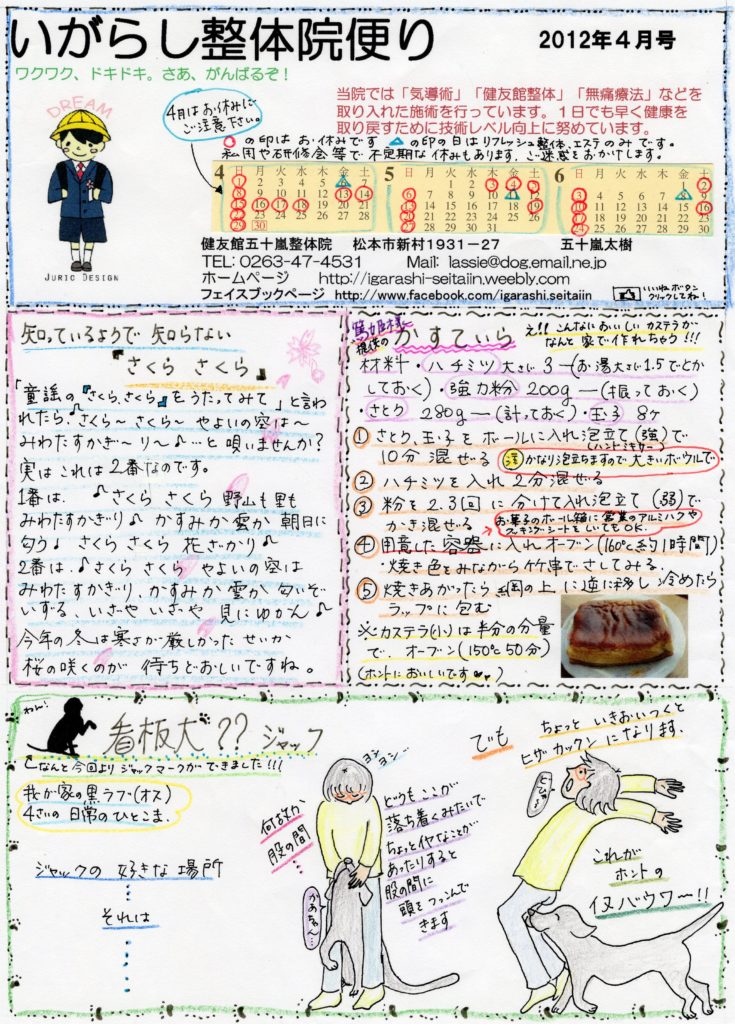 いがらし整体院便り
2012年4月号
ワクワク、ドキドキ。さあ、がんばるぞ！
DREAM
JURIC DESIGN
4月はお休みに
ご注意下さい。
当院では「気導術」「健友館整体」「無痛療法」などを
取り入れた施術を行っています。1日でも早く健康を
取り戻すために技術レベル向上に努めています。
○の印はお休みです △の印の日はリフレッシュ整体、エステのみです。
私用や研修会等で不定期な休みもあります。ご迷惑をおかけします。
4 日 月 火 水 木 金 土
1 2 3 4 5 6 7
8 9 10 11 12 13 14
15 16 17 18 19 20 21
22 23 24 25 26 27 28
29 30
5 日 月 火 水 木 金 土
1 2 3 4 5
6 7 8 9 10 11 12
13 14 15 16 17 18 19
20 21 22 23 24 25 26
27 28 29 30 31
6 日 月 火 水 木 金 土
1 2
3 4 5 6 7 8 9
10 11 12 13 14 15 16
17 18 19 20 21 22 23
24 25 26 27 28 29 30
健友館五十嵐整体院 松本市新村1931－27 五十嵐太樹
TEL: 0263-47-4531 Mail: lassie@dog.email.ne.jp
ホームページ http://igarashi-seitaiin.weebly.com
フェイスブックページ http://www.facebook.com/igarashi.seitaiin
いいねボタン
クリックしてね！
知っているようで 知らない
『さくら さくら』
「童謡の『さくら、さくら』をうたってみて」と言わ
れたら♪さくら～ さくら～ やよいの空は～
みわたすかぎ～り～♪…と唄いませんか？
実はこれは2番なのです。
1番は、♪さくら さくら 野山も里も
みわたすかぎり♪ かすみか雲か 朝日に
匂う♪ さくら さくら 花ざかり♪
2番は、♪さくら さくら やよいの空は
みわたすかぎり、かすみか雲か 匂いぞ
いずる、いざや いざや 見にゆかん♪
今年の冬は寒さが厳しかったせいか
桜の咲くのが 待ちどおしいですね。
提供の
かすていら
え!! こんなにおいしい カステラが
なんと 家で作れちゃう!!!
材料・ハチミツ大さじ3―(お湯大さじ1.5でとか
しておく)・強力粉 200g―(振っておく)
・さとう 280g―(計っておく)・玉子 8ヶ
① さとう、玉子をボールに入れ泡立て(強)で
(ハンドミキサー)
10分 混ぜる 注 かなり泡立ちますので大きいボウルで
② ハチミツを入れ 2分混ぜる
③ 粉を2.3回に分けて入れ泡立て(弱)で
かき混ぜる
④ 用意した容器に入れオーブン(160℃約1時間)
焼き色をみながら竹串でさしてみる。
⑤ 焼きあがったら 網の上に逆に移し 冷めたら
ラップに包む
※カステラ(小)は半分の分量
で、オーブン(150℃50分)
(ホントにおいしいです♥)
わん！
看板犬?? ジャック
なんと今回よりジャックマークができました!!!
我が家の黒ラブ(オス)
4さいの日常のひとこま、
ジャックの 好きな場所
それは
何故か
股の間…
ヨシ
ヨシ
かあちゃん…
どうもここが
落ち着くみたいで
ちょっとイヤなことが
あったりすると
股の間に
頭をつっこんで
きます
でも
ちょっと いきおいつくと
ヒザカックンになります、
これが
ホントの
イヌバウワー!!